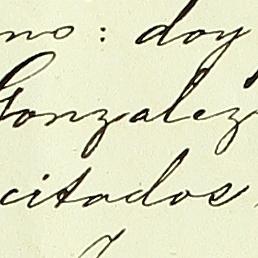 no: doy
Gonzalez
citados